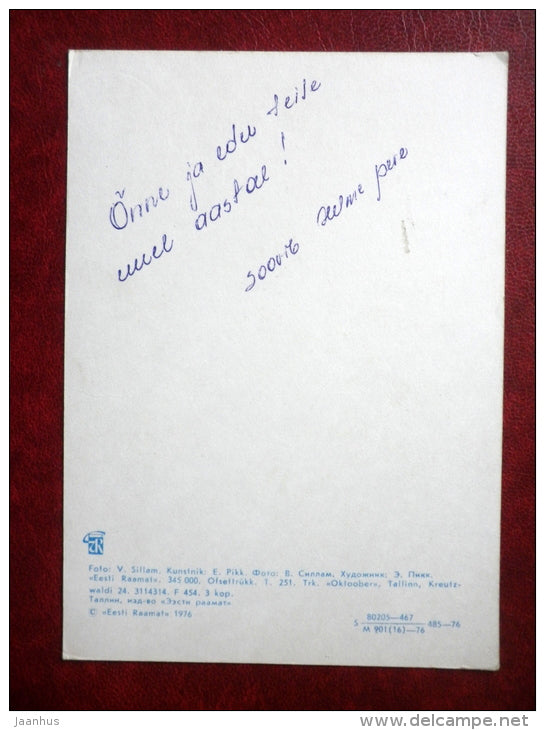 Õnne ja edu teile
uuel aastal!
soovib Selme pere
Foto: V. Sillam. Kunstnik: E. Pikk. Фото: В. Силлам. Художник: Э. Пикк.
«Eesti Raamat». 345 000. Ofsettrükk. T. 251. Trk. «Oktoober», Tallinn, Kreutz-
waldi 24. 3114314. F 454. 3 kop.
Таллин, изд-во «Ээсти раамат»
© «Eesti Raamat» 1976
S 80205—467 485—76
M 901(16)—76
jaanhus
www.delcampe.net